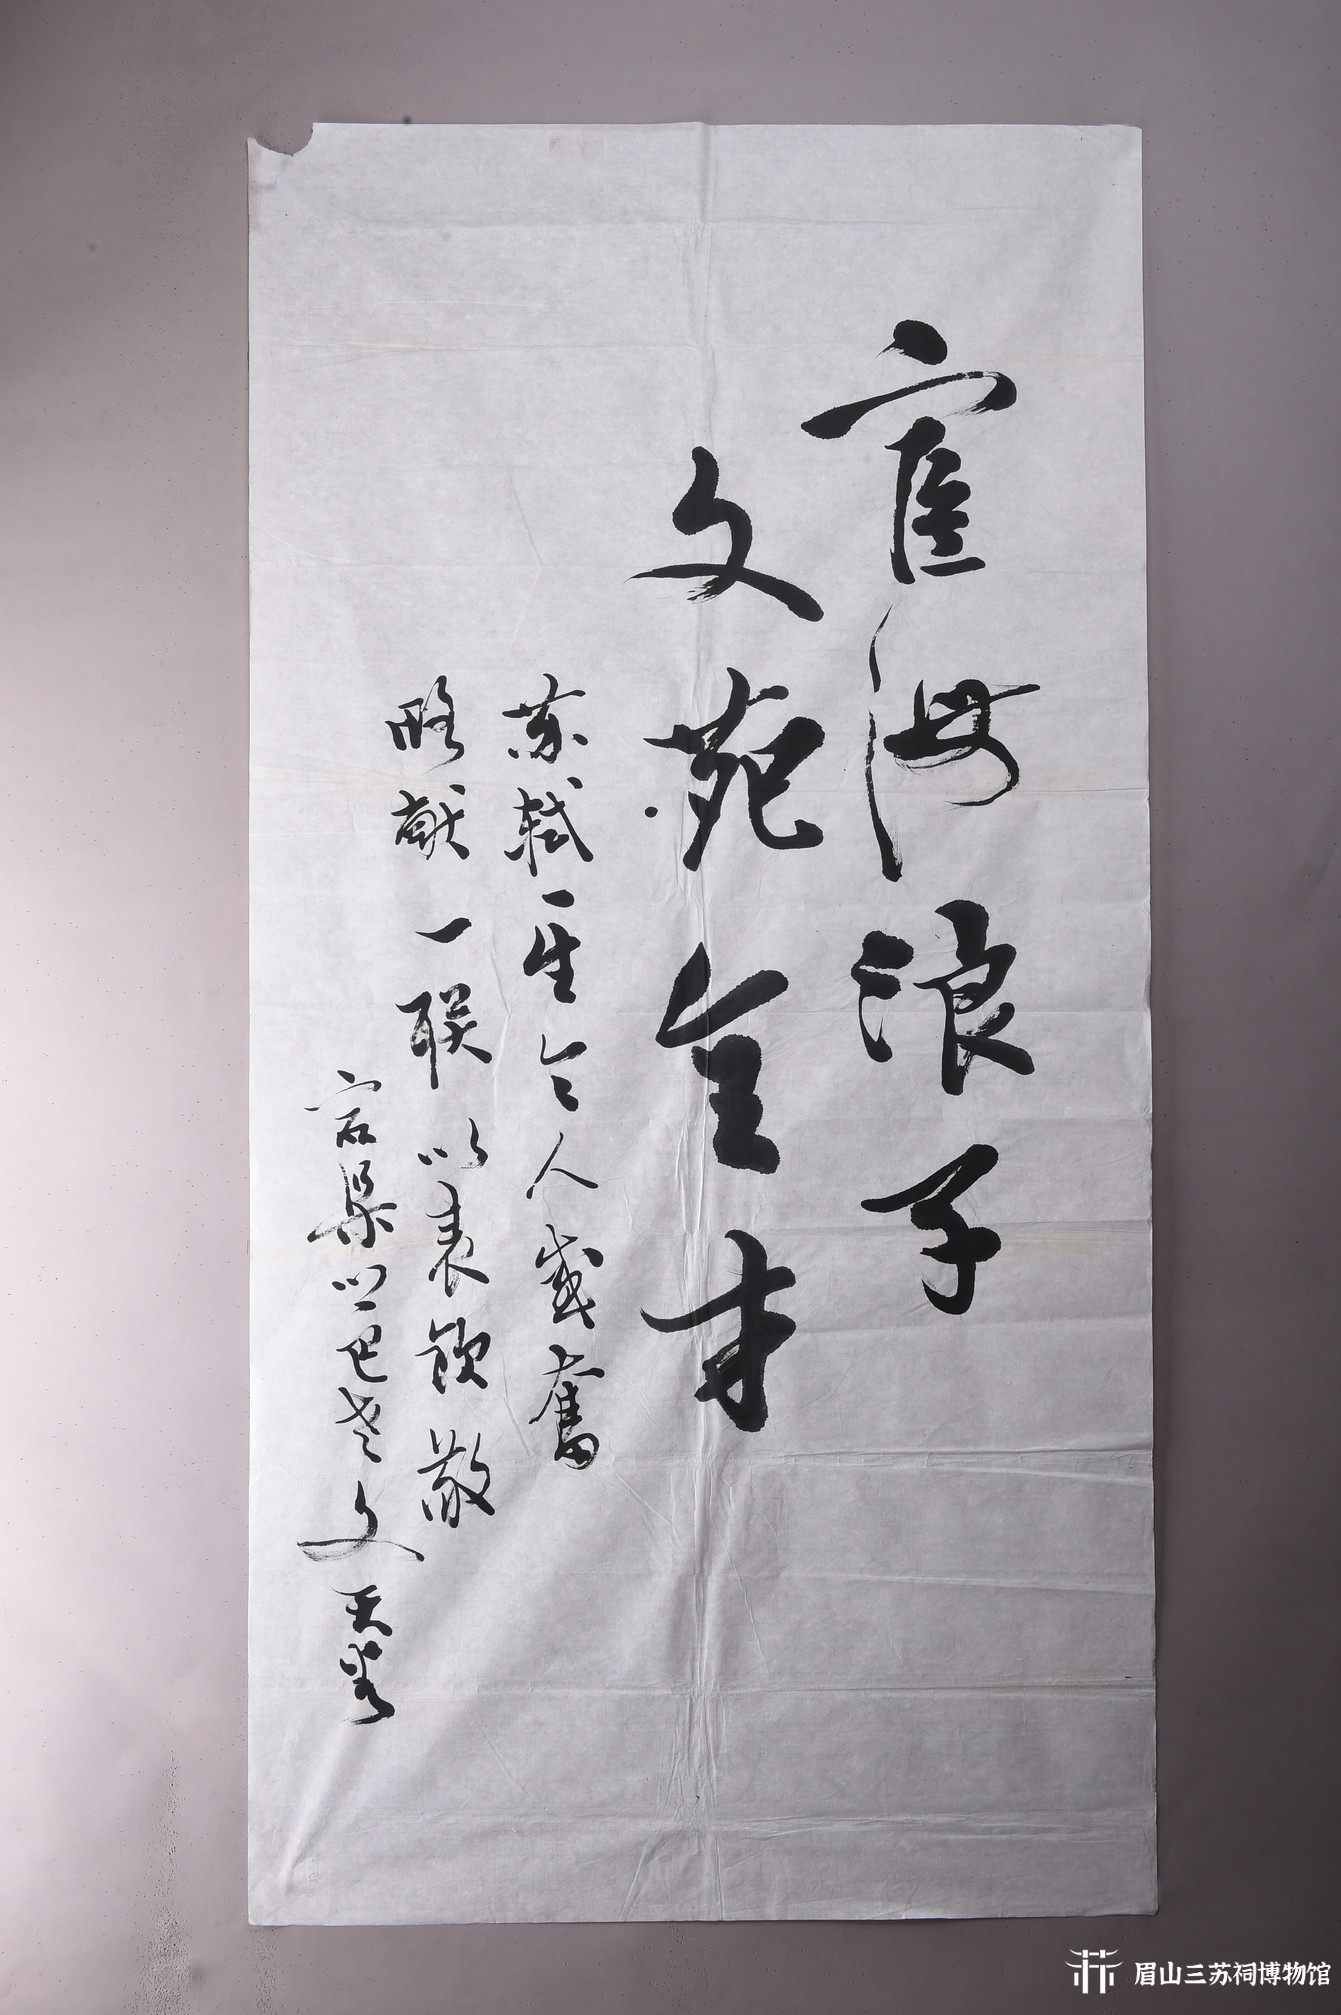 宦海浪子
文苑全才
苏轼一生令人感奋
略献一联以表钦敬
宕渠 巴老文
眉山三苏祠博物馆